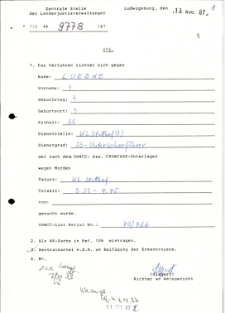 Zentrale Stelle
der Landesjustizverwaltungen
Ludwigsburg, den 12. Aug. 87
9778
Vfg.
1. Das Verfahren richtet sich gegen
Name: L U E D K E
Vorname: ?
Geburtstag: ?
Geburtsort: ?
Einheit: SS
Dienststelle: KL Stutthof (?)
Dienstgrad: SS-Unterscharführer
der nach dem UNWCC- bzw. CROWCASS-Unterlagen
wegen Mordes
Tatort: KL Stutthof
Tatzeit: 9.39 - 4.45
von:
gesucht wurde.
UNWCC-List Serial No.: 79/726
2. Als AR-Sache in Ref. 104 eintragen.
3. Zentralkartei m.d.B. um Beifügung der Erkenntnisse.
Richter am Amtsgericht